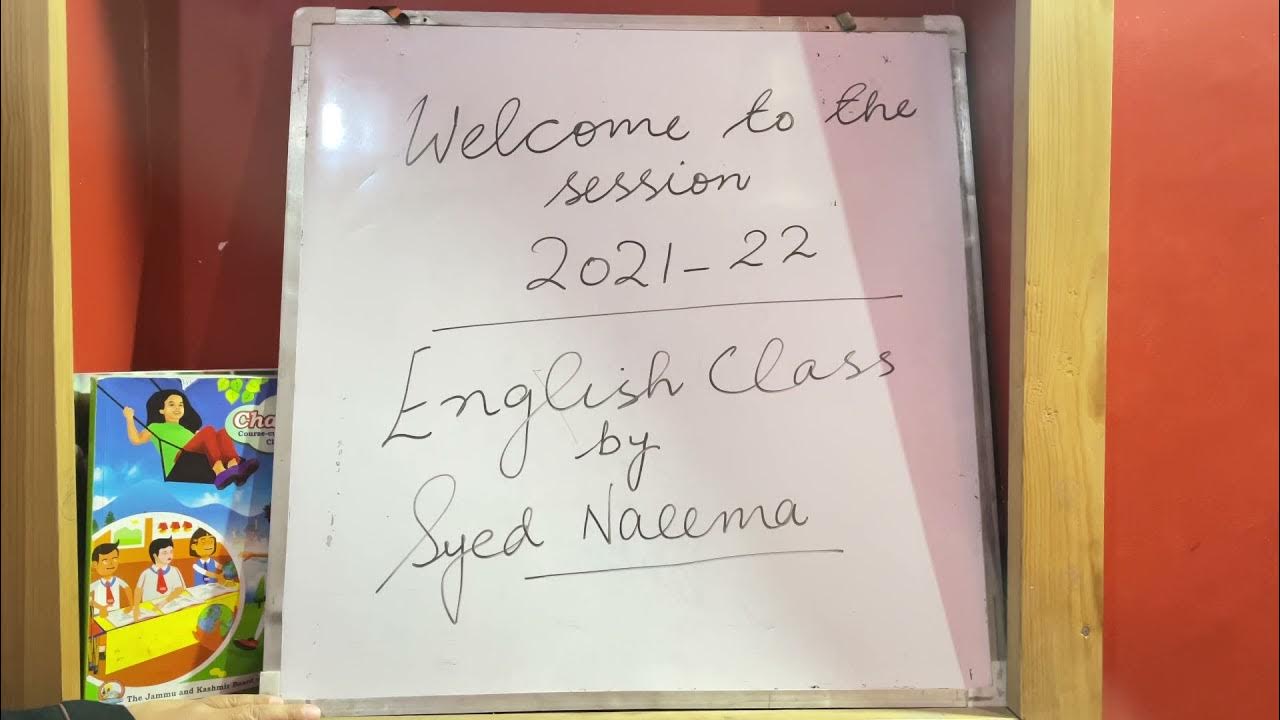 Welcome to the
session
2021-22
English Class
by
Syed Naeema
Cha
Course-
The Jammu and Kashmir Board